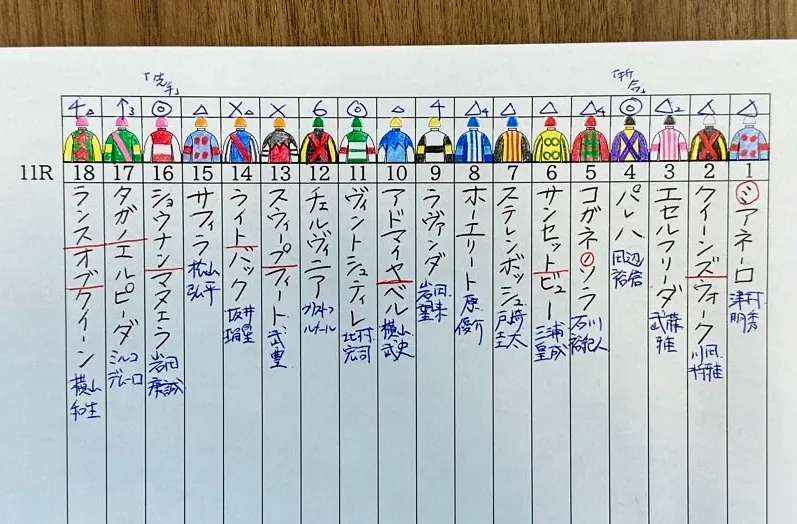 「先手」
「折合」
11R 18 17 16 15 14 13 12 11 10 9 8 7 6 5 4 3 2 1
ミアネーロ
津村
明秀
クイーンズウォーク
川田
将雅
エセルフリーダ
武藤
雅
パレハ
田辺
裕信
コガネノソラ
石川
裕紀人
サンセットビュー
三浦
皇成
ステレンボッシュ
戸崎
圭太
ホーエリート
原
優介
ラヴァンダ
岩田
望来
アドマイヤベル
横山
武史
ヴィントシュティレ
北村
宏司
チェルヴィニア
クリストフ
ルメール
スウィープフィート
武豊
ライトバック
坂井
瑠星
サフィラ
松山
弘平
ショウナンマヌエラ
岩田
康誠
タガノエルピーダ
ミルコ
デムーロ
ランスオブクイーン
横山
和生